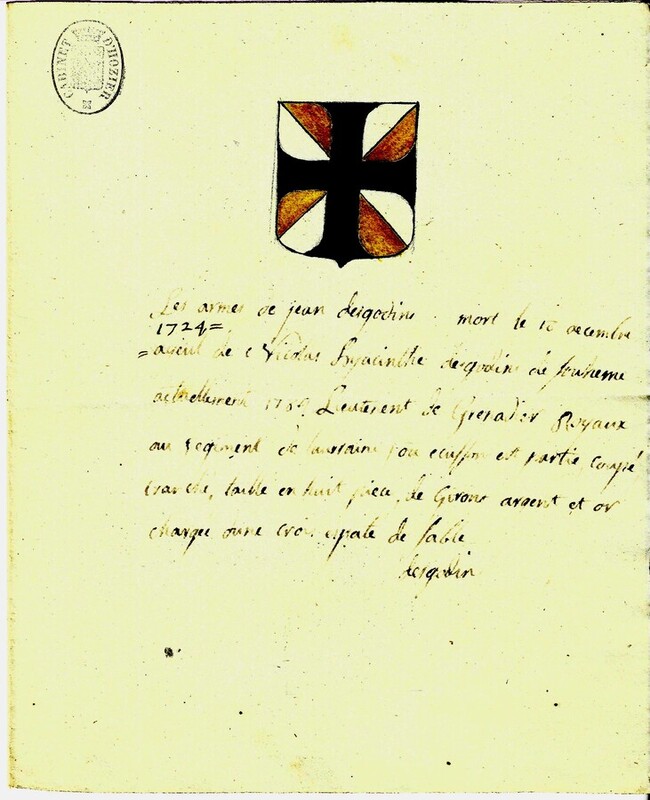 CABINET D'HOZIER
Les armes de jean desgodins mort le 10 decembre
1724=
=ayeul de Nicolas hyacinthe desgodins de souhesme
actuellement Lieutenent de Grenadier Royaux
au regiment de lorraine son ecusson est partie coupé
tranché, taillé en huit piece, de Girons argent et or
chargee dune croix epaté de sable
desgodin